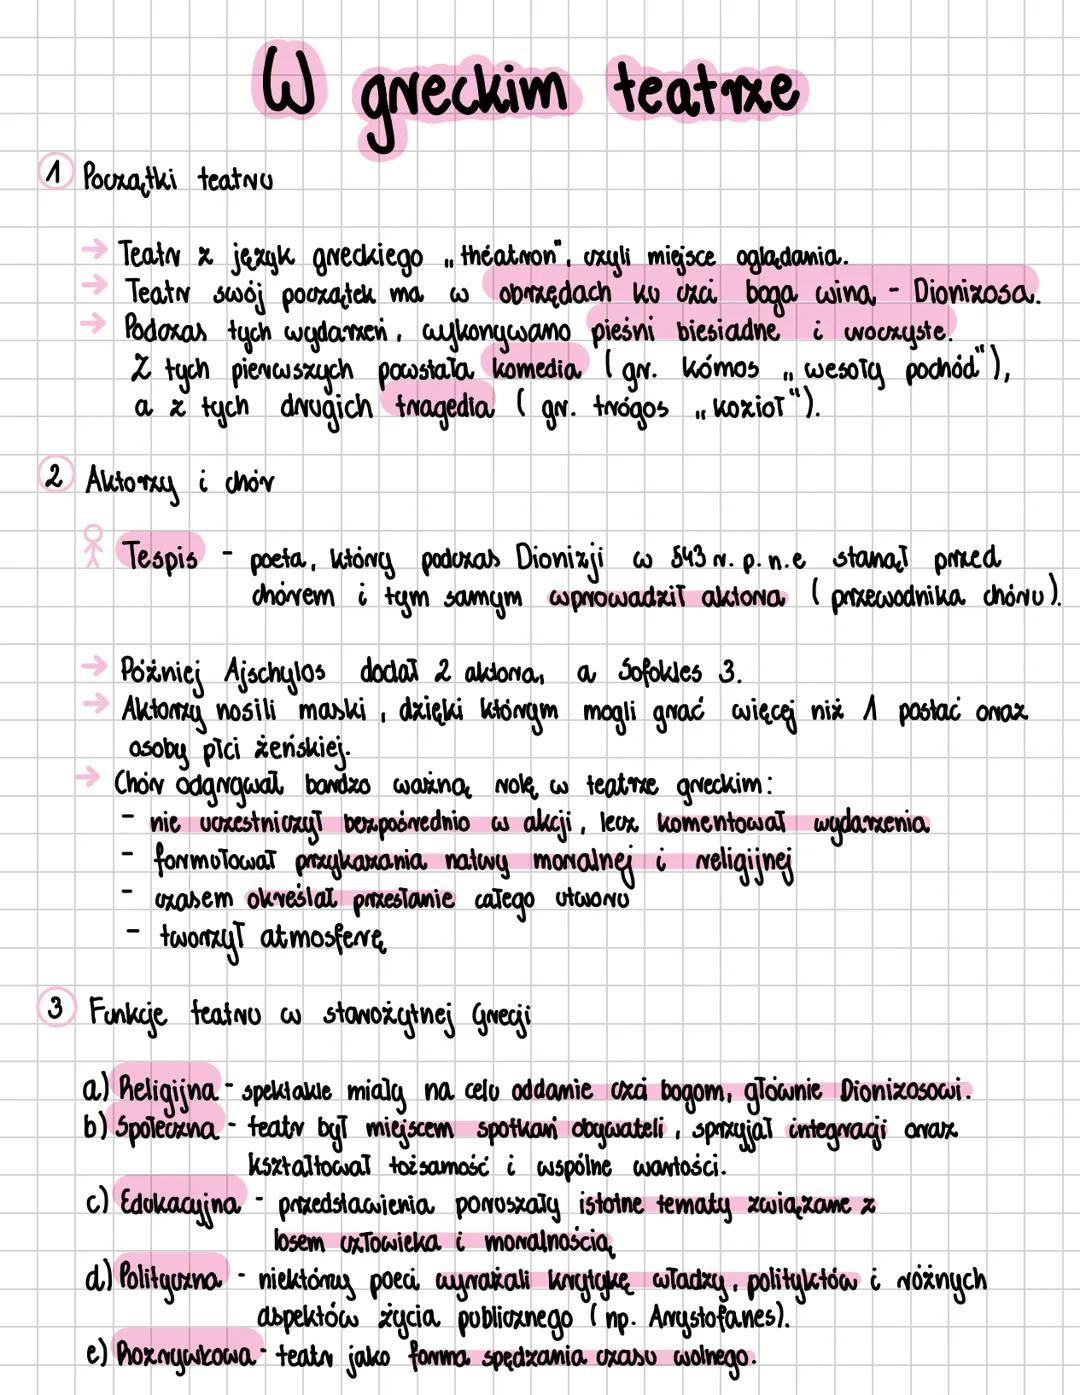 W greckim teatrze
1 Początki teatru
→ Teatr z język greckiego „théatron", czyli miejsce oglądania.
→ Teatr swój początek ma w obrzędach ku czci boga wina - Dionizosa.
→ Podczas tych wydarzeń, wykonywano pieśni biesiadne i uroczyste.
Z tych pierwszych powstała komedia (gr. kómos „wesoły pochód"),
a z tych drugich tragedia (gr. trógos „kozioł").
2 Aktorzy i chór
Tespis - poeta, który podczas Dionizji w 543 r. p.n.e stanął przed
chórem i tym samym wprowadził aktora (przewodnika chóru).
→ Później Ajschylos dodał 2 aktora, a Sofokles 3.
→ Aktorzy nosili maski, dzięki którym mogli grać więcej niż 1 postać oraz
osoby płci żeńskiej.
→ Chór odgrywał bardzo ważną rolę w teatrze greckim:
- nie uczestniczył bezpośrednio w akcji, lecz komentował wydarzenia
- formułował przykazania natury moralnej i religijnej
- czasem określał przesłanie całego utworu
- tworzył atmosferę
3 Funkcje teatru w starożytnej Grecji
a) Religijna - spektakle miały na celu oddanie czci bogom, głównie Dionizosowi.
b) Społeczna - teatr był miejscem spotkań obywateli, sprzyjał integracji oraz
kształtował tożsamość i wspólne wartości.
c) Edukacyjna - przedstawienia poruszały istotne tematy związane z
losem człowieka i moralnością
d) Polityczna - niektórzy poeci wyrażali krytykę władzy, polityktów i różnych
aspektów życia publicznego (np. Arystofanes).
e) Rozrywkowa - teatr jako forma spędzania czasu wolnego.